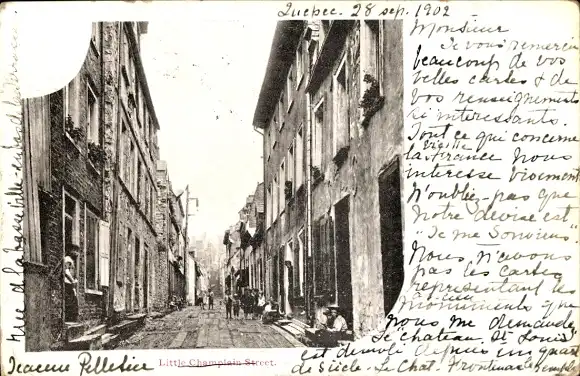 Quebec. 28 sep. 1902
Monsieur
Je vous remercie
beaucoup de vos
belles cartes & de
vos renseignements
si interessants.
Tout ce qui concerne
la vieille France nous
interesse vivement
N'oubliez pas que
notre devise est
"Je me Souviens"
Nous n'avons
pas les cartes
representant les
monuments que
vous me demandez
Le "chateau St Louis"
est demoli depuis un quart
de siècle. Le Chat. Frontenac
Jeanne Pelletier
Little Champlain Street.
rue de la basse-ville